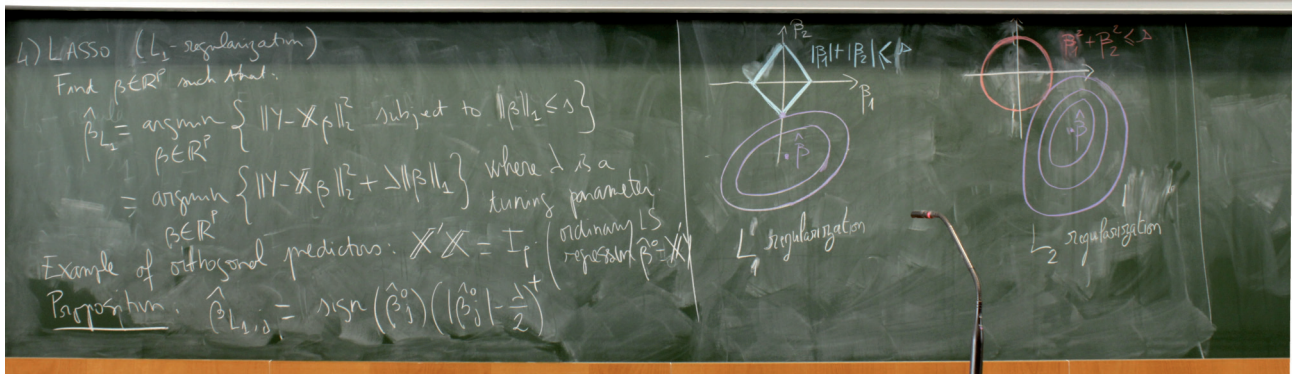 4) LASSO (L₁-regularization)
Find β∈ℝᵖ such that:
β̂_L₁ = argmin β∈ℝᵖ { ‖Y-𝕏β‖₂² subject to ‖β‖₁ ≤ s }
= argmin β∈ℝᵖ { ‖Y-𝕏β‖₂² + λ‖β‖₁ } where λ is a
tuning parameter.
Example of orthogonal predictors: 𝕏'𝕏 = Iₚ (ordinary LS
regression β̂⁰=𝕏'Y)
Proposition: β̂_L₁,j = sign(β̂ⱼ⁰)(|β̂ⱼ⁰|-λ/2)⁺
β₂
|β₁|+|β₂| ≤ s
β₁
β̂
L₁ regularization
β₁²+β₂² ≤ s
β̂
L₂ regularization